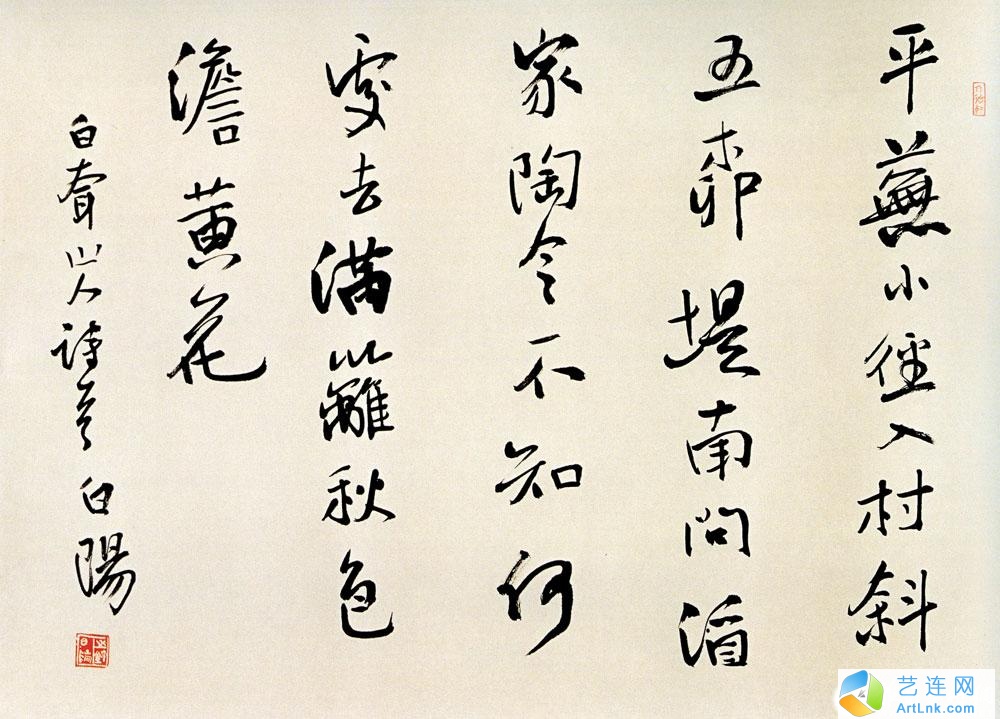 平蕪小徑入村斜
五柳堤南問酒
家陶令不知何
處去滿籬秋色
澹黃花
白耷山人詩 白陽
艺连网
ArtLnk.com